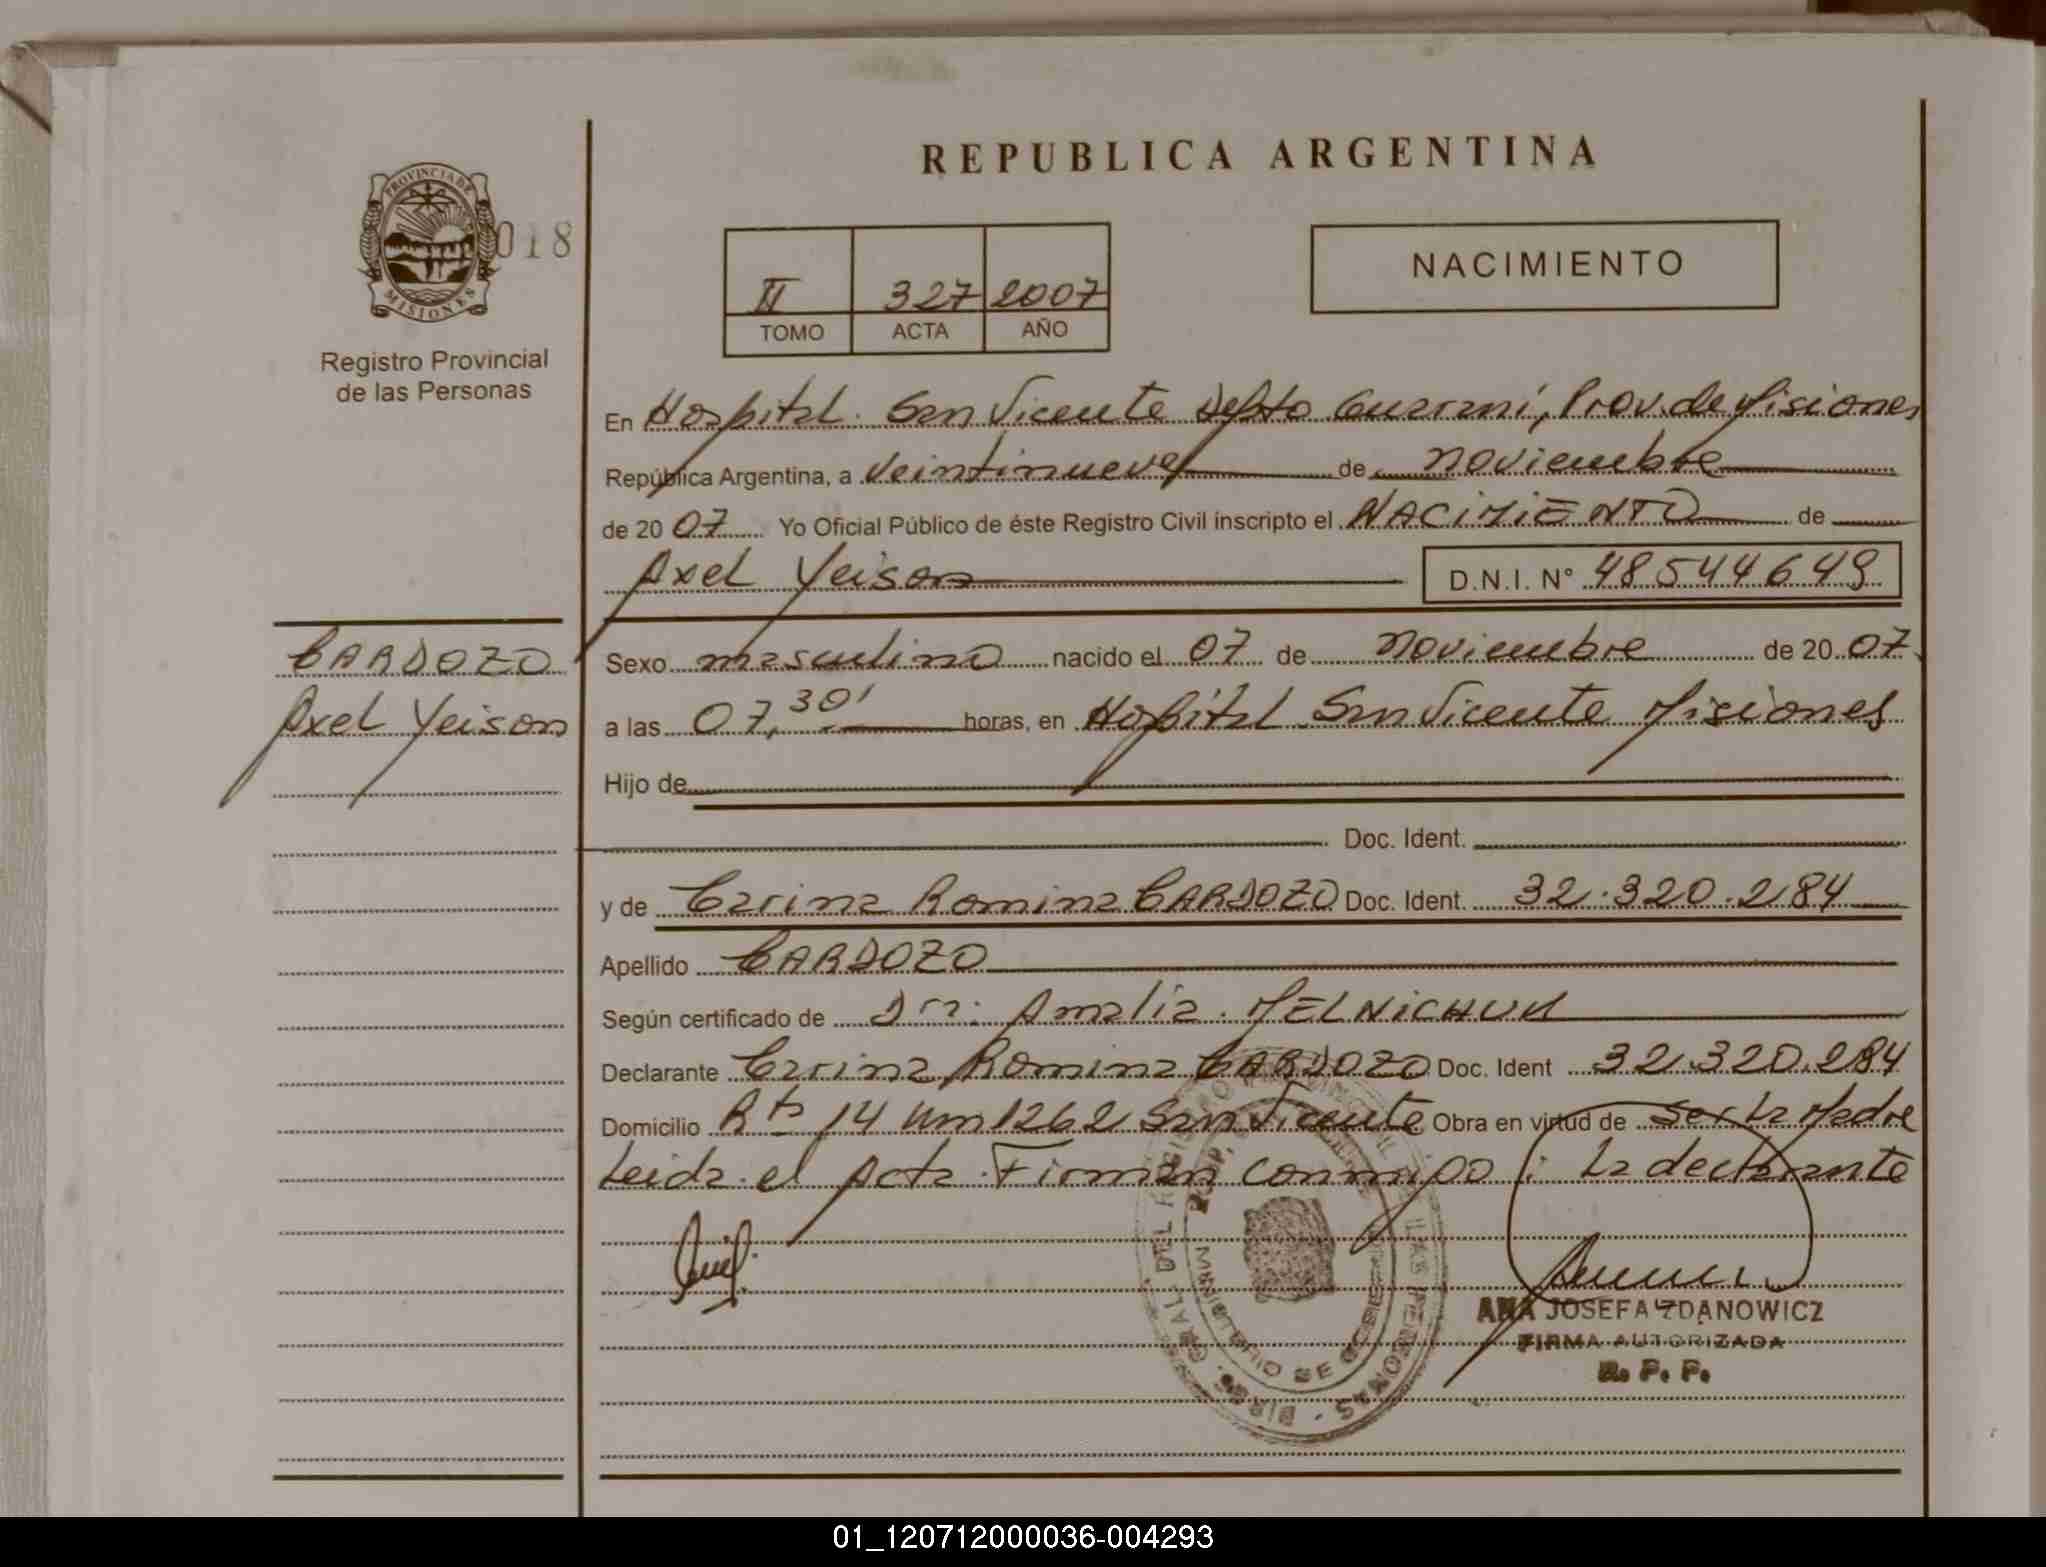 REPUBLICA ARGENTINA
PROVINCIA DE
MISIONES
018
Registro Provincial
de las Personas
II 327 2007
TOMO ACTA AÑO
NACIMIENTO
En Hospital San Vicente Depto Guaraní, Prov. de Misiones
República Argentina, a veintinueve de noviembre
de 20 07 Yo Oficial Público de éste Registro Civil inscripto el NACIMIENTO de
Axel Yeison D.N.I. N° 48544649
CARDOZO
Axel Yeison
Sexo masculino nacido el 07 de noviembre de 20 07
a las 07,30' horas, en Hospital San Vicente Misiones
Hijo de
Doc. Ident.
y de Carina Romina CARDOZO Doc. Ident. 32.320.284
Apellido CARDOZO
Según certificado de Dra. Amalia MELNICHUK
Declarante Carina Romina CARDOZO Doc. Ident 32.320.284
Domicilio Rta 14 Km 1262 San Vicente Obra en virtud de ser la Madre
Leida el Acta Firman conmigo: la declarante
ANA JOSEFA ZDANOWICZ
FIRMA AUTORIZADA
R. P. P.
01_120712000036-004293